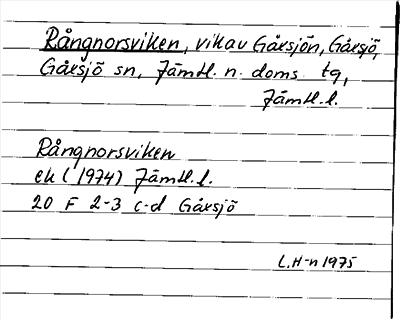 Rångnorsviken, vik av Gåxsjön, Gåxsjö,
Gåxsjö sn, Jämtl. n. doms. tg,
Jämtl. l.
Rångnorsviken
ek (1974) Jämtl. l.
20 F 2-3 c-d Gåxsjö
L. H-n 1975